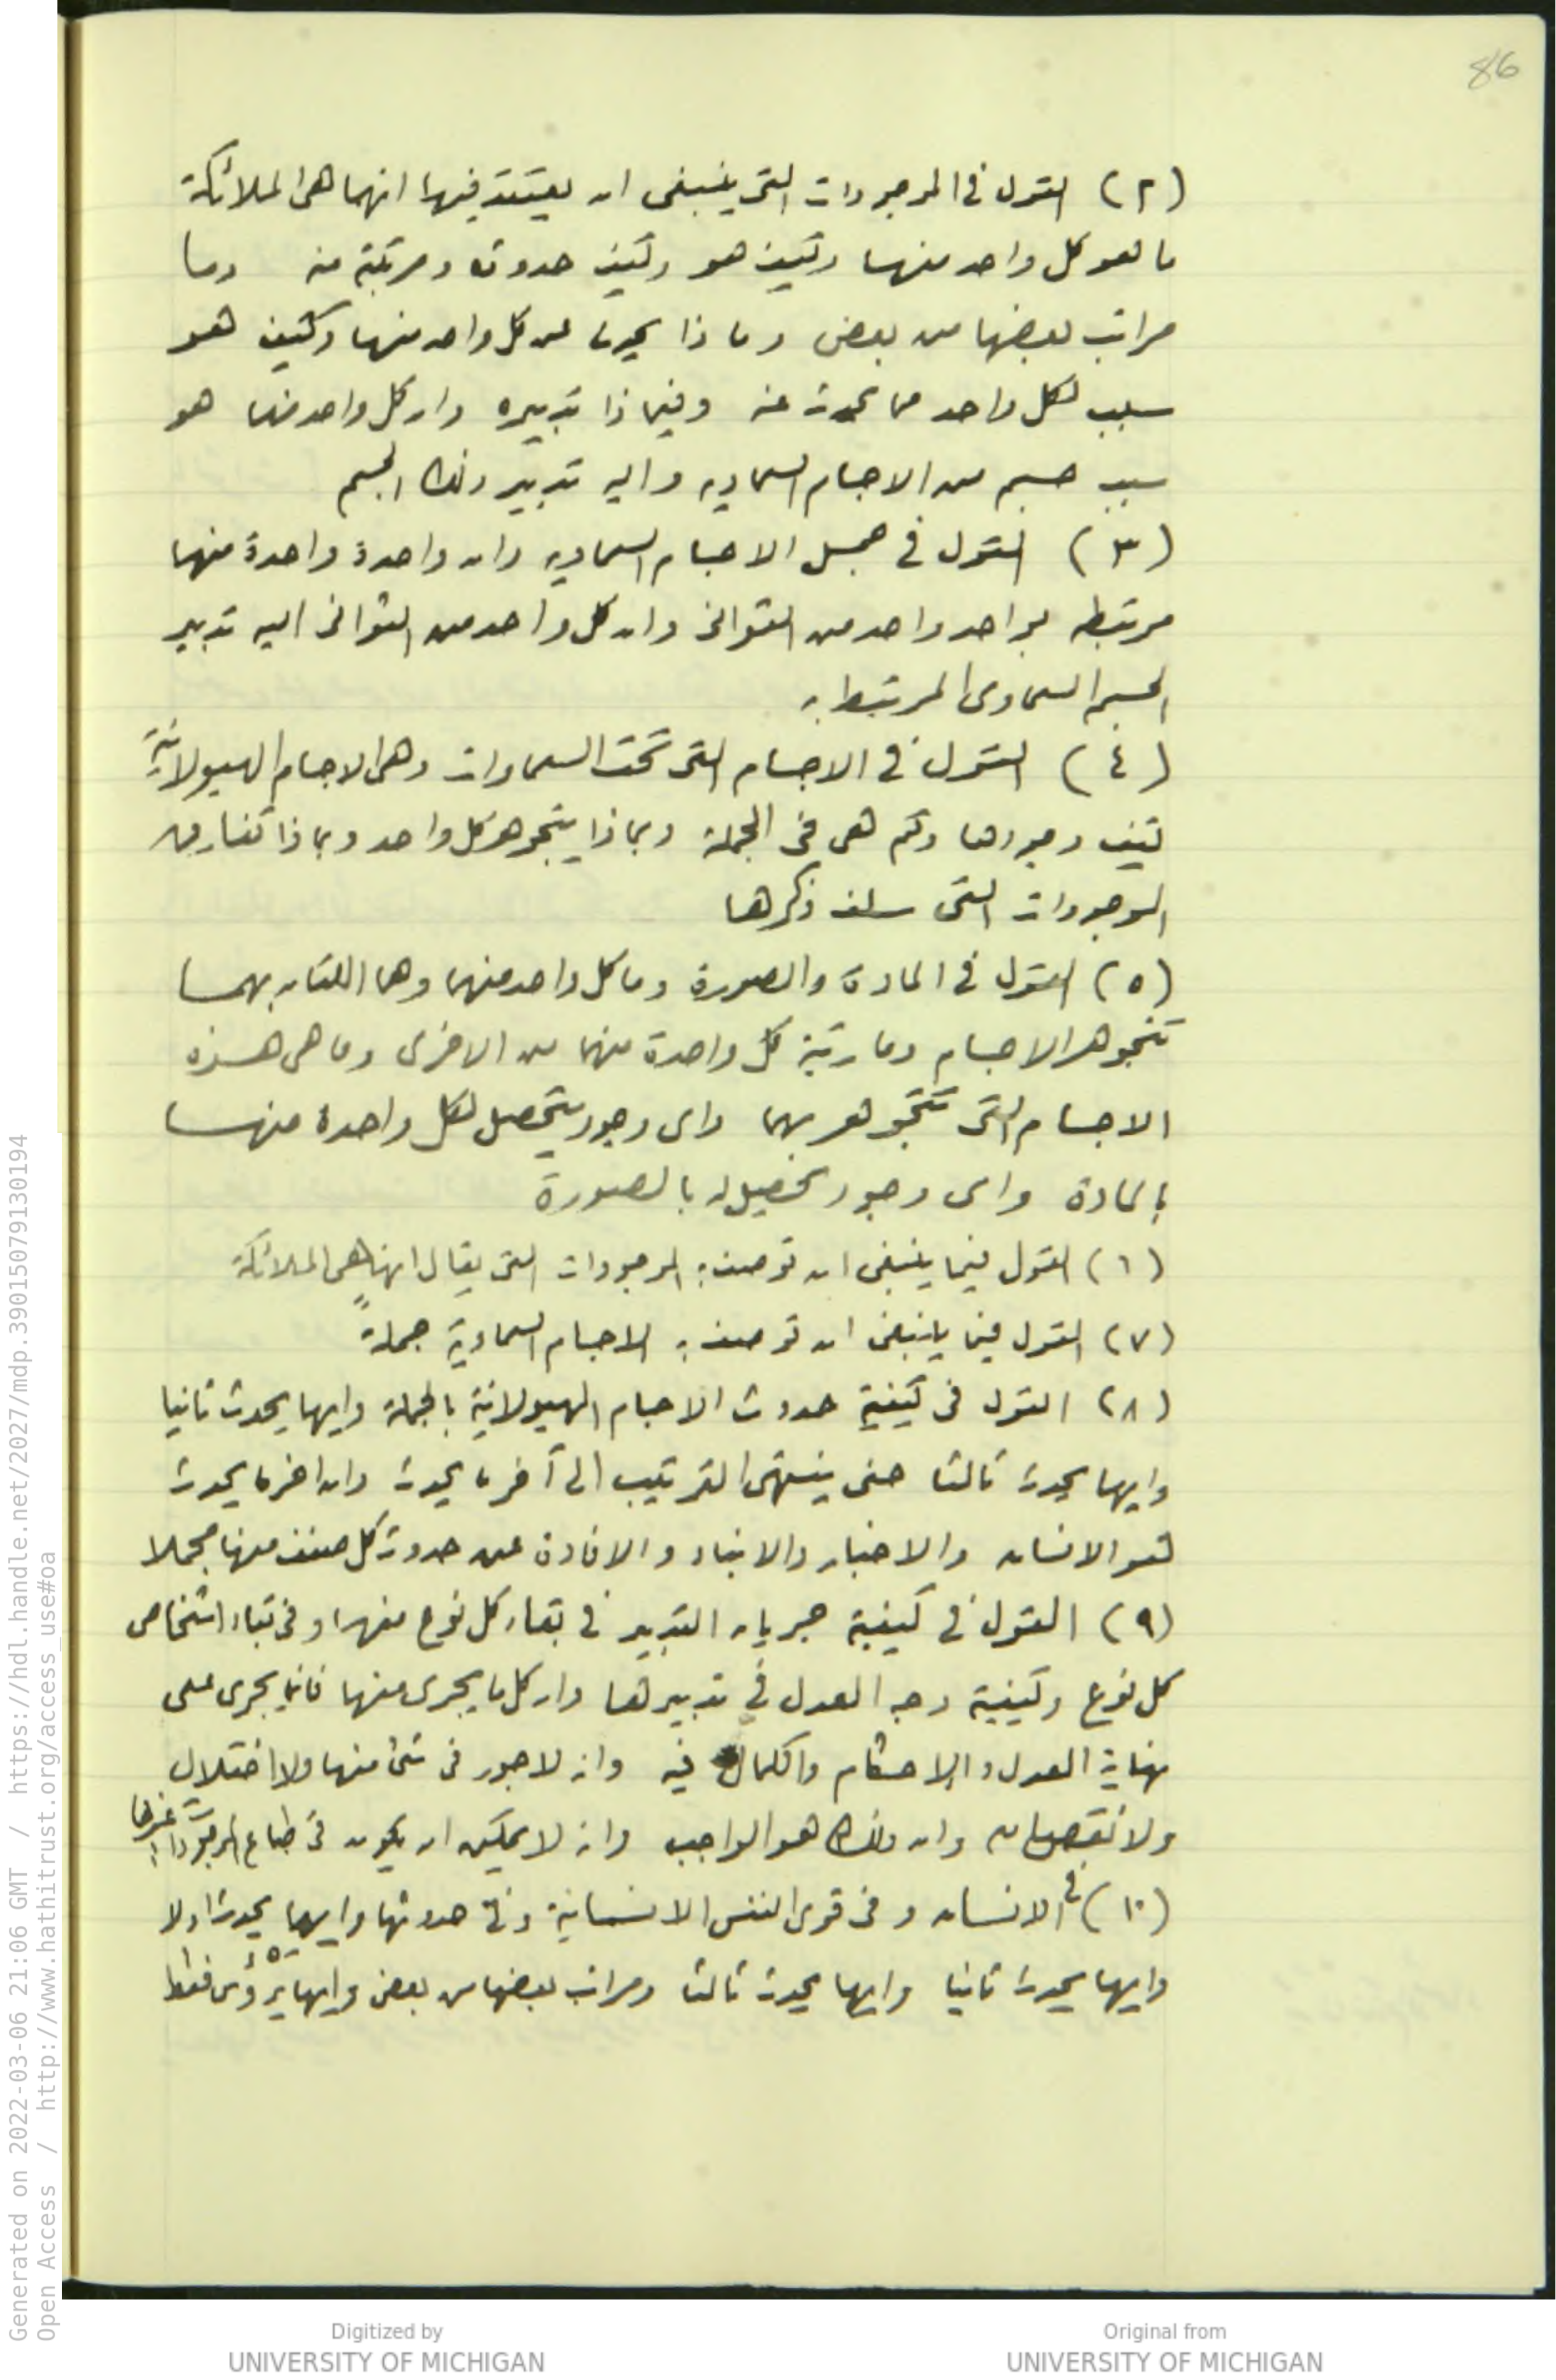 86
(٢) القول في الموجودات التى ينبغى ان يعتقد فيها انها هى الملائكة
ما هو كل واحد منها وكيف هو وكيف حدوثه ومرتبته منه وما
مراتب بعضها من بعض وماذا يحدث عن كل واحد منها وكيف هو
سبب لكل واحد مما يحدث عنه وفيماذا تدبيره وان كل واحد منها هو
سبب جسم من الاجسام السماويه واليه تدبير ذلك الجسم
(٣) القول في جمل الاجسام السماويه وان واحدة واحدة منها
مرتبطه بواحد واحد من الثوانى وان كل واحد من الثوانى اليه تدبير
الجسم السماوى المرتبط به
(٤) القول في الاجسام التى تحت السماوات وهى الاجسام الهيولانيّة
كيف وجودها وكم هى فى الجملة وبماذا يتجوهر كل واحد وبماذا تفارق
الموجودات التى سلف ذكرها
(٥) القول في المادة والصورة وما كل واحد منهما وهما اللتان بهما
تتجوهر الاجسام وما رتبة كل واحدة منهما من الاخرى وما هى هذه
الاجسام التى تتجوهر بهما واى وجود يتحصل لكل واحدة منها
بالمادة واى وجود تحصيل له بالصورة
(٦) القول فيما ينبغى ان توصف به الموجودات التى يقال انها هى الملائكة
(٧) القول فيما ينبغى ان توصف به الاجسام السماوية جملةً
(٨) القول فى كيفية حدوث الاجسام الهيولانية بالجملة وايها يحدث ثانيا
وايها يحدث ثالثا حتى ينتهى الترتيب الى آخر ما يحدث وان اخر ما يحدث
هو الانسان والاخبار والانباء والافادة عن حدوث كل صنف منها مجملا
(٩) القول في كيفية جريان التدبير في بقاء كل نوع منها و في بقاء اشخاص
كل نوع وكيفية وجه العدل في تدبيرها وان كل ما يجرى منها فانما يجرى على
نهاية العدل والاحكام والكمال فيه وانه لا جور فى شئ منها ولا اختلال
ولا نقصان وان ذلك هو الواجب وانه لا يمكن ان يكون فى طباع الموجودات غيرها
(١٠) في الانسان و فى قوى النفس الانسانية وفى حدوثها وايها يحدث اولا
وايها يحدث ثانيا وايها يحدث ثالثا ومراتب بعضها من بعض وايها يرؤس فقط
Generated on 2022-03-06 21:06 GMT / https://hdl.handle.net/2027/mdp.39015079130194
Open Access / http://www.hathitrust.org/access_use#oa
Digitized by
UNIVERSITY OF MICHIGAN
Original from
UNIVERSITY OF MICHIGAN